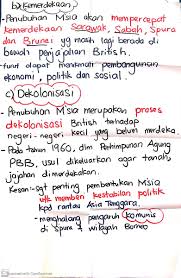 b) Kemerdekaan
- Penubuhan M'sia akan mempercepat
kemerdekaan Sarawak, Sabah, S'pura
dan Brunei yg masih lagi berada di
bawah penjajahan British.
- turut dapat memacu pembangunan
ekonomi, politik dan sosial.
c) Dekolonisasi
- Penubuhan M'sia merupakan proses
dekolonisasi British terhadap
negeri-negeri kecil yang belum merdeka.
- Pada tahun 1960, dlm Perhimpunan Agung
PBB, usul dikeluarkan agar tanah
jajahan dimerdekakan.
pembentukan M'sia
utk memberi kestabilan politik
kpd rantau Asia Tenggara.
- menghalang pengaruh komunis
di S'pura & wilayah Borneo